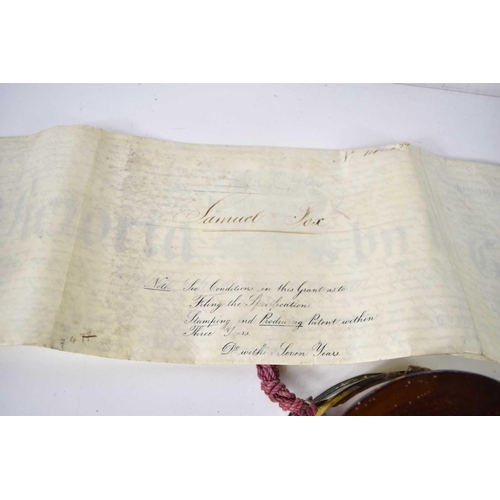 Samuel Fox
Note See Conditions in this Grant as to
Filing the Specification
Stamping and Producing Patent within
Three Years.
Do with: Seven Years.